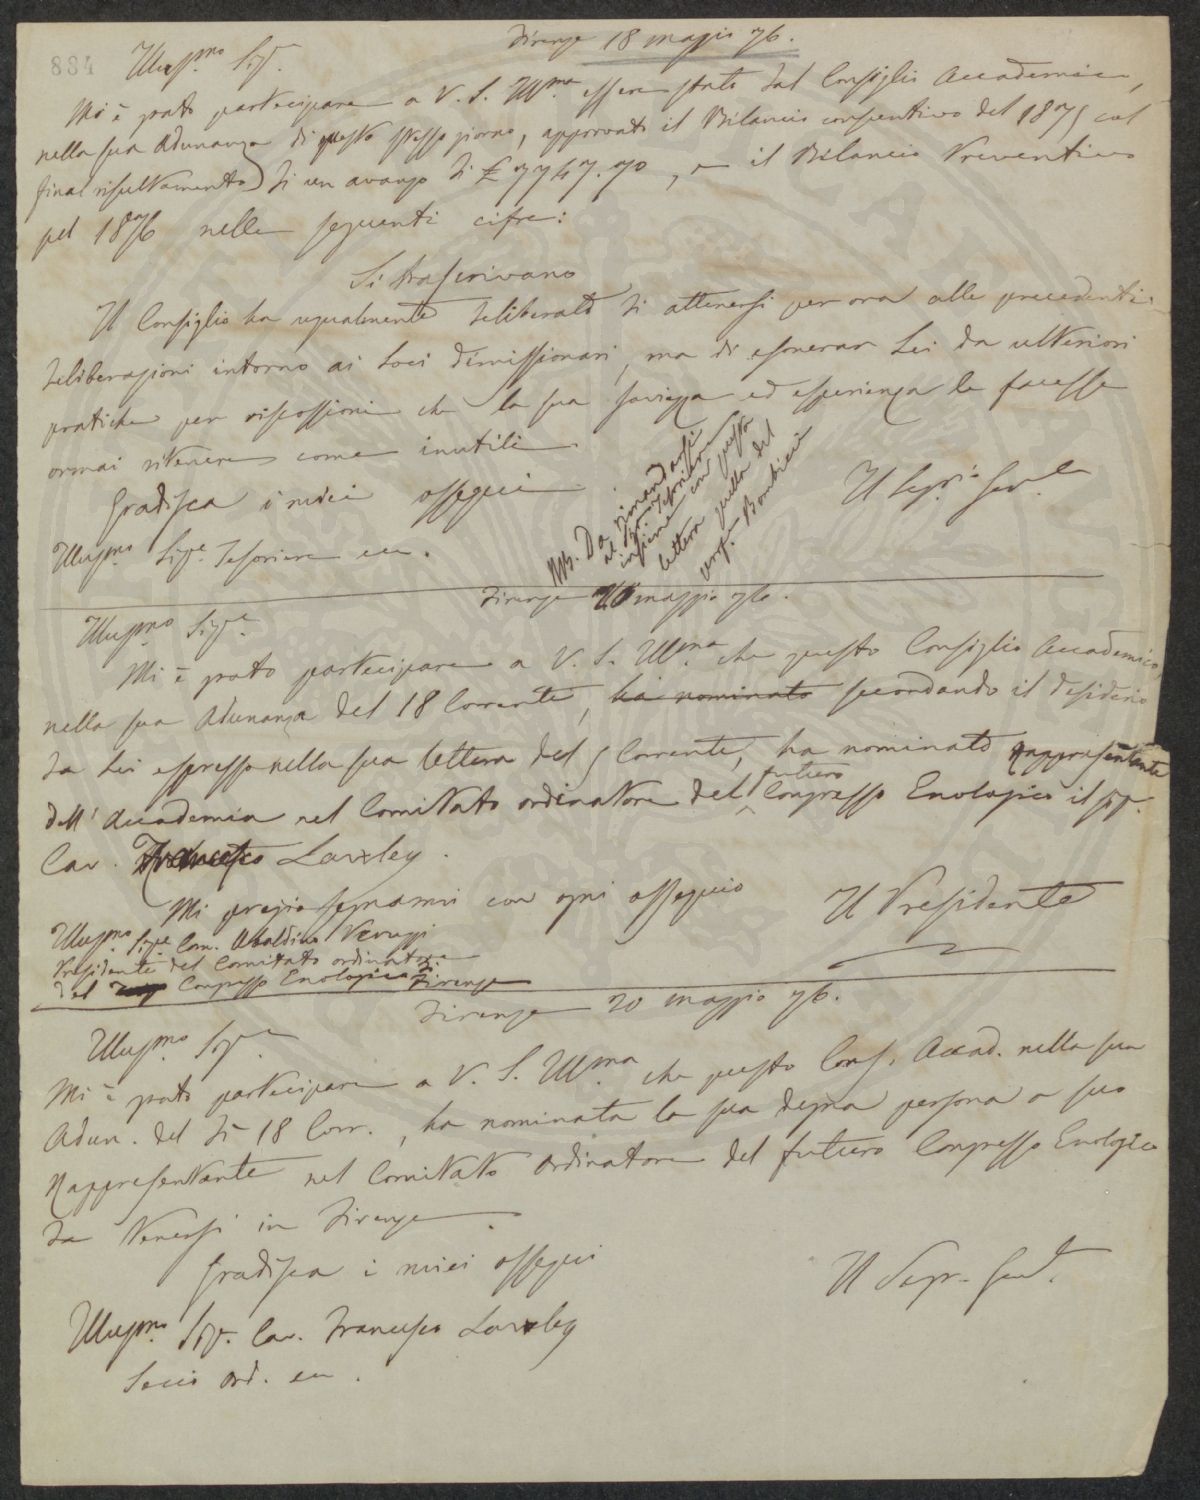 884
Firenze 18 maggio 76.
Illus.mo Sig.re
Mi è grato partecipare a V. S. Ill.ma essere stato dal Consiglio Accademico,
nella sua Adunanza di questo stesso giorno, approvato il Bilancio consuntivo del 1875 col
final risultamento di un avanzo di £ 7747.70, e il Bilancio Preventivo
pel 1876 nelle seguenti cifre:
Si trascrivano
Il Consiglio ha ugualmente deliberato di attenersi per ora alle precedenti
deliberazioni intorno ai Soci dimissionari, ma di esonerar Lei da ulteriori
pratiche per riscossioni che la sua saviezza ed esperienza le facesse
ormai ritenere come inutili
Gradisca i miei ossequi
Il Seg.rio Gen.le
Illus.mo Sig.re Tesoriere ecc.
NB. Da rimandarsi
al Sig. Tesoriere
insieme con questa
lettera quella del
Bombicci
Firenze 20 maggio 76.
Illus.mo Sig.re
Mi è grato partecipare a V. S. Ill.ma che questo Consiglio Accademico,
nella sua Adunanza del 18 Corrente, ha nominato secondando il desiderio
da Lei espresso nella sua lettera del 5 Corrente, ha nominato Rappresentante
dell'Accademia nel Comitato ordinatore del futuro Congresso Enologico il sig.
Cav. Francesco Lawley.
Mi pregio segnarmi con ogni ossequio
Il Presidente
Illus.mo Sig.re Com. Ubaldino Peruzzi
Presidente del Comitato ordinatore
del Congresso Enologico Firenze
Firenze 20 maggio 76.
Illus.mo Sig.re
Mi è grato partecipare a V. S. Ill.ma che questo Cons. Accad. nella sua
Adun. del dì 18 Corr., ha nominata la sua degna persona a suo
Rappresentante nel Comitato Ordinatore del futuro Congresso Enologico
da tenersi in Firenze.
Gradisca i miei ossequi
Il Segr. Gen.le
Illus.mo Sig.r Cav. Francesco Lawley
Socio Ord. ecc.